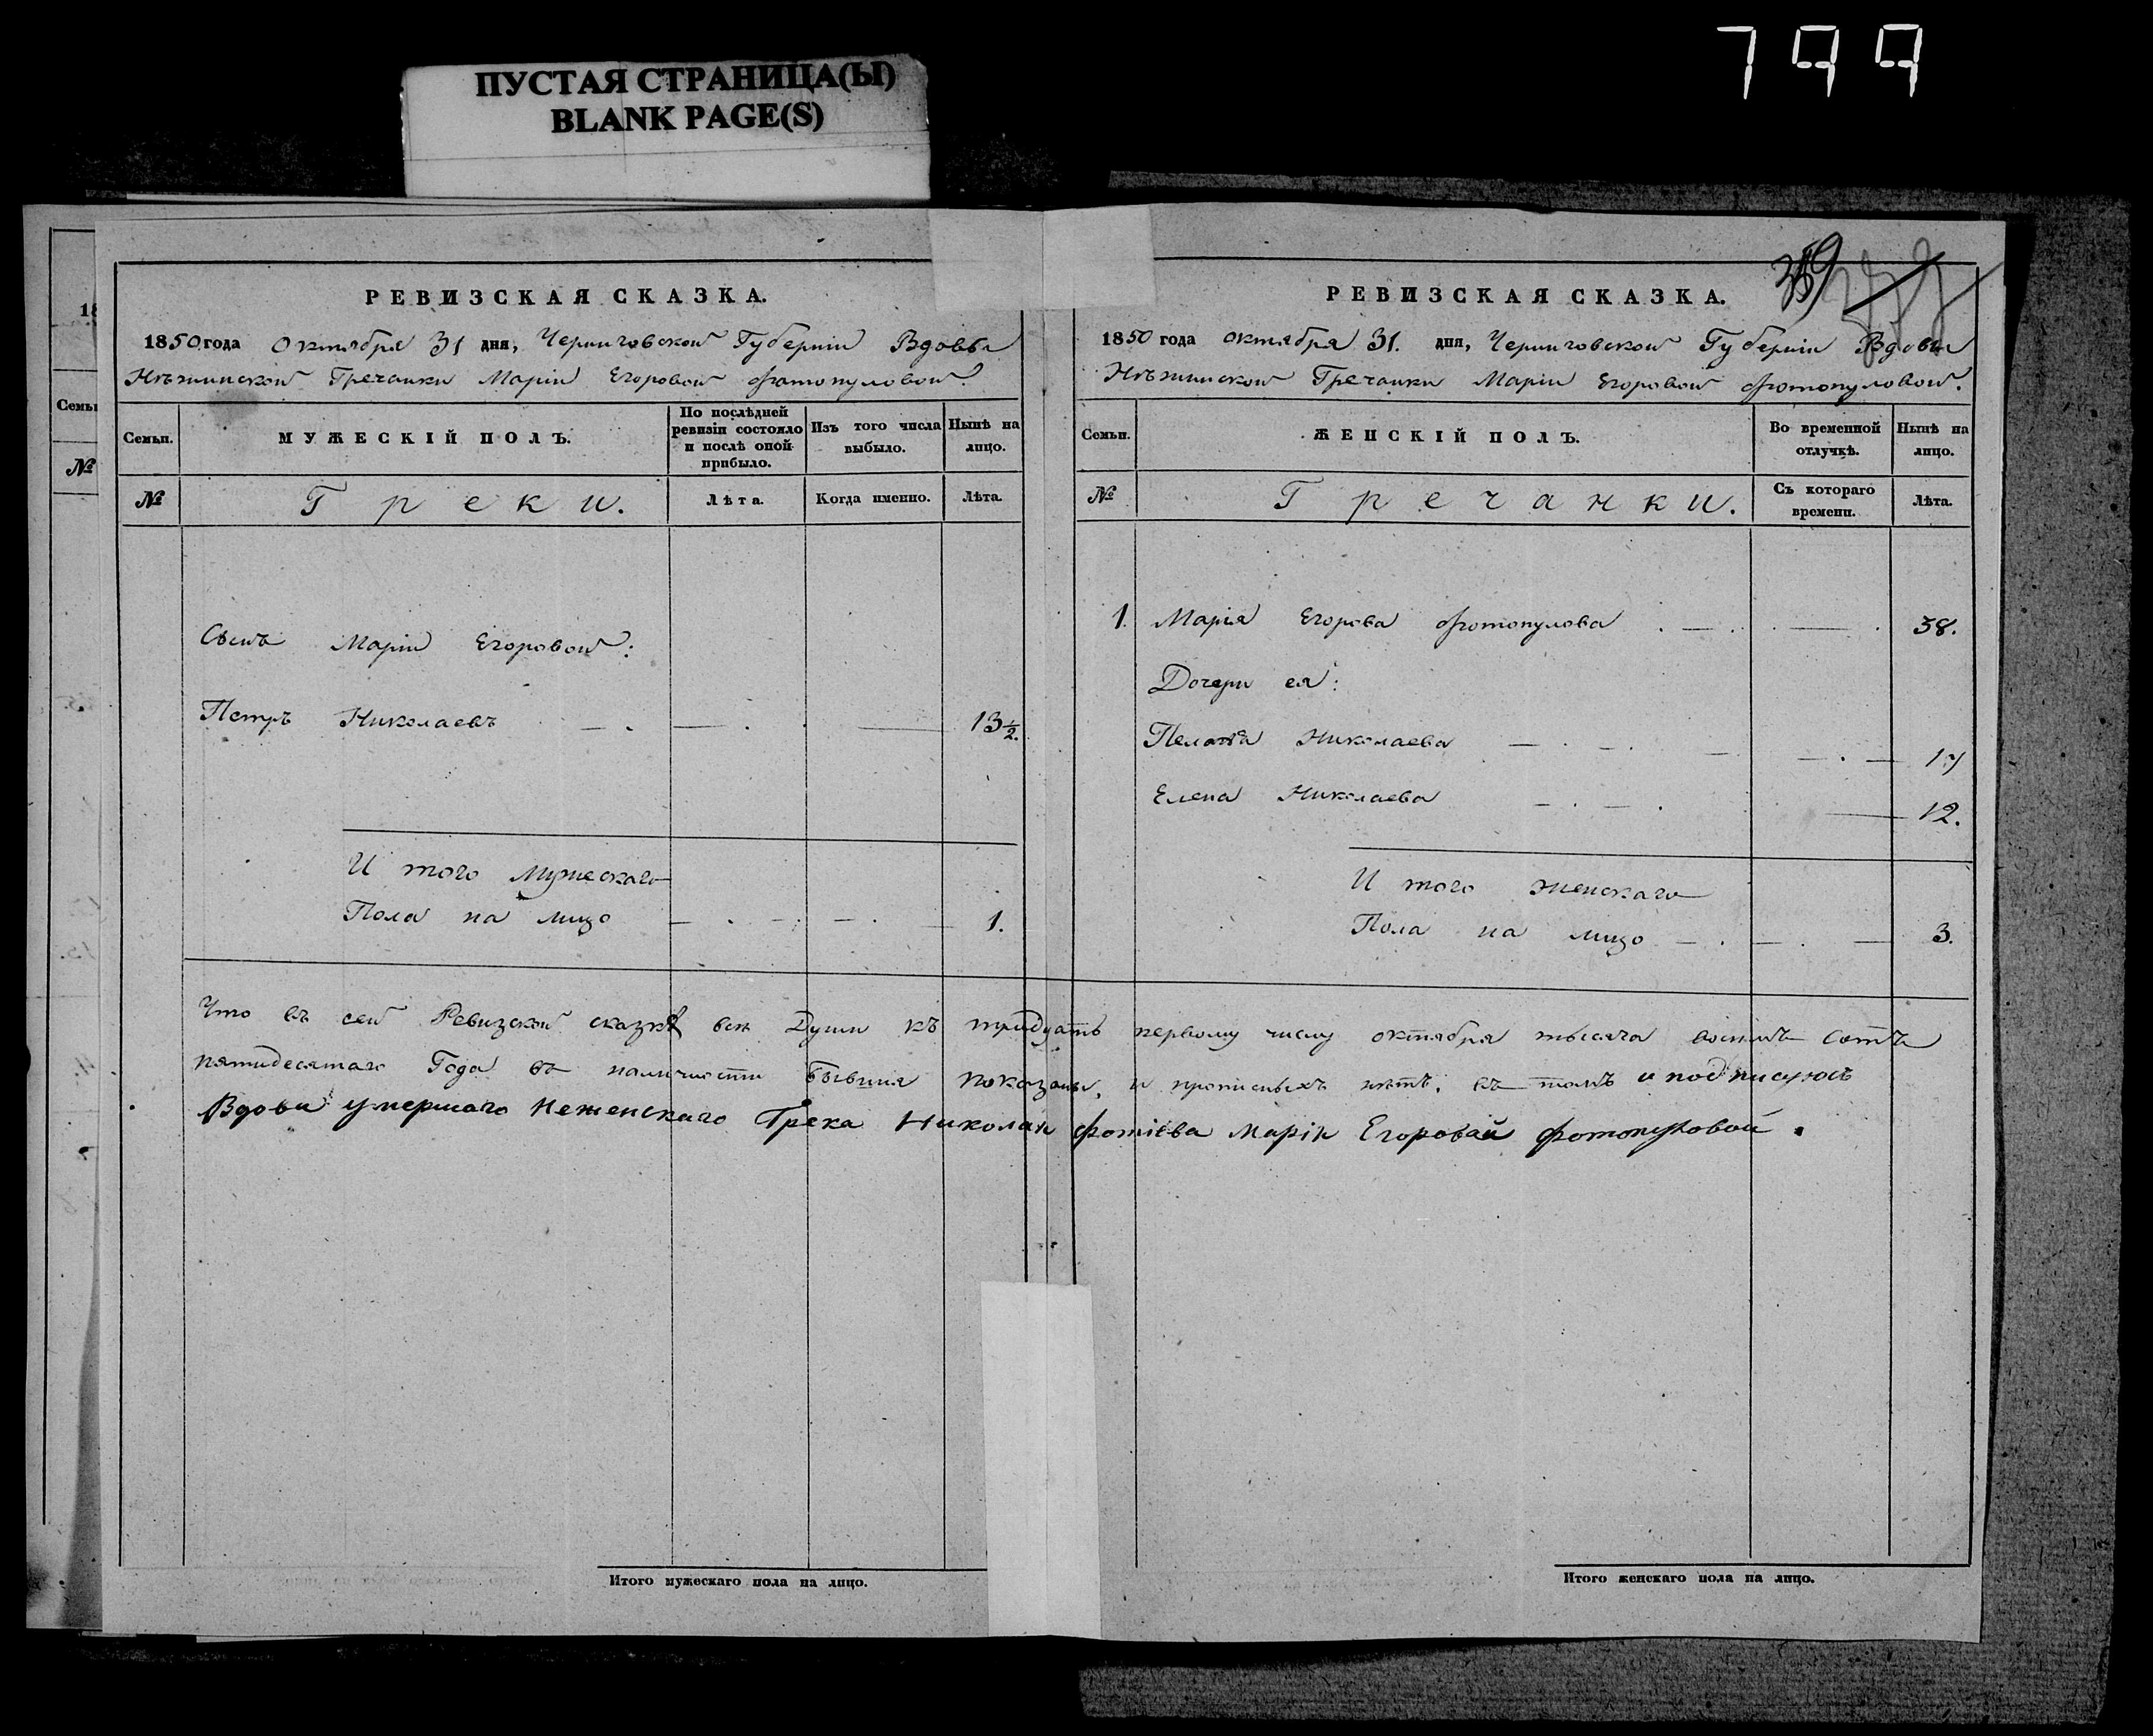 799
ПУСТАЯ СТРАНИЦА(Ы)
BLANK PAGE(S)
РЕВИЗСКАЯ СКАЗКА.
1850 года Октября 31 дня, Черниговской Губерніи Вдовы
Нѣжинской Гречанки Маріи Егоровой Фотопуловой.
Семьи.
МУЖЕСКІЙ ПОЛЪ.
По послѣдней ревизіи состояло и послѣ оной прибыло.
Изъ того числа выбыло.
Нынѣ на лицо.
№
Греки.
Лѣта.
Когда именно.
Лѣта.
Сынъ Маріи Егоровой:
Петръ Николаевъ 13½.
И того Мужескаго
Пола на лицо 1.
359
РЕВИЗСКАЯ СКАЗКА.
1850 года октября 31. дня, Черниговской Губерніи Вдовы
Нѣжинской Гречанки Маріи Егоровой Фотопуловой.
Семьи.
ЖЕНСКІЙ ПОЛЪ.
Во временной отлучкѣ.
Нынѣ на лицо.
№
Гречанки.
Съ котораго времени.
Лѣта.
1. Марія Егорова Фотопулова 38.
Дочери ея:
Николаева 17
Елена Николаева 12.
И того женскаго
Пола на лицо 3.
Что въ сей Ревизской сказкѣ всѣ Души къ тридцать первому числу октября тысяча восимъ сотъ
пятидесятаго Года въ наличности бывшия показаны, и прописныхъ нѣтъ. въ томъ и подписуюсь
Вдовы умершаго Неженскаго Грека Николая Фотіева Маріи Егоровай Фотопуловой.
Итого мужескаго пола на лицо.
Итого женскаго пола на лицо.
Семьи
№